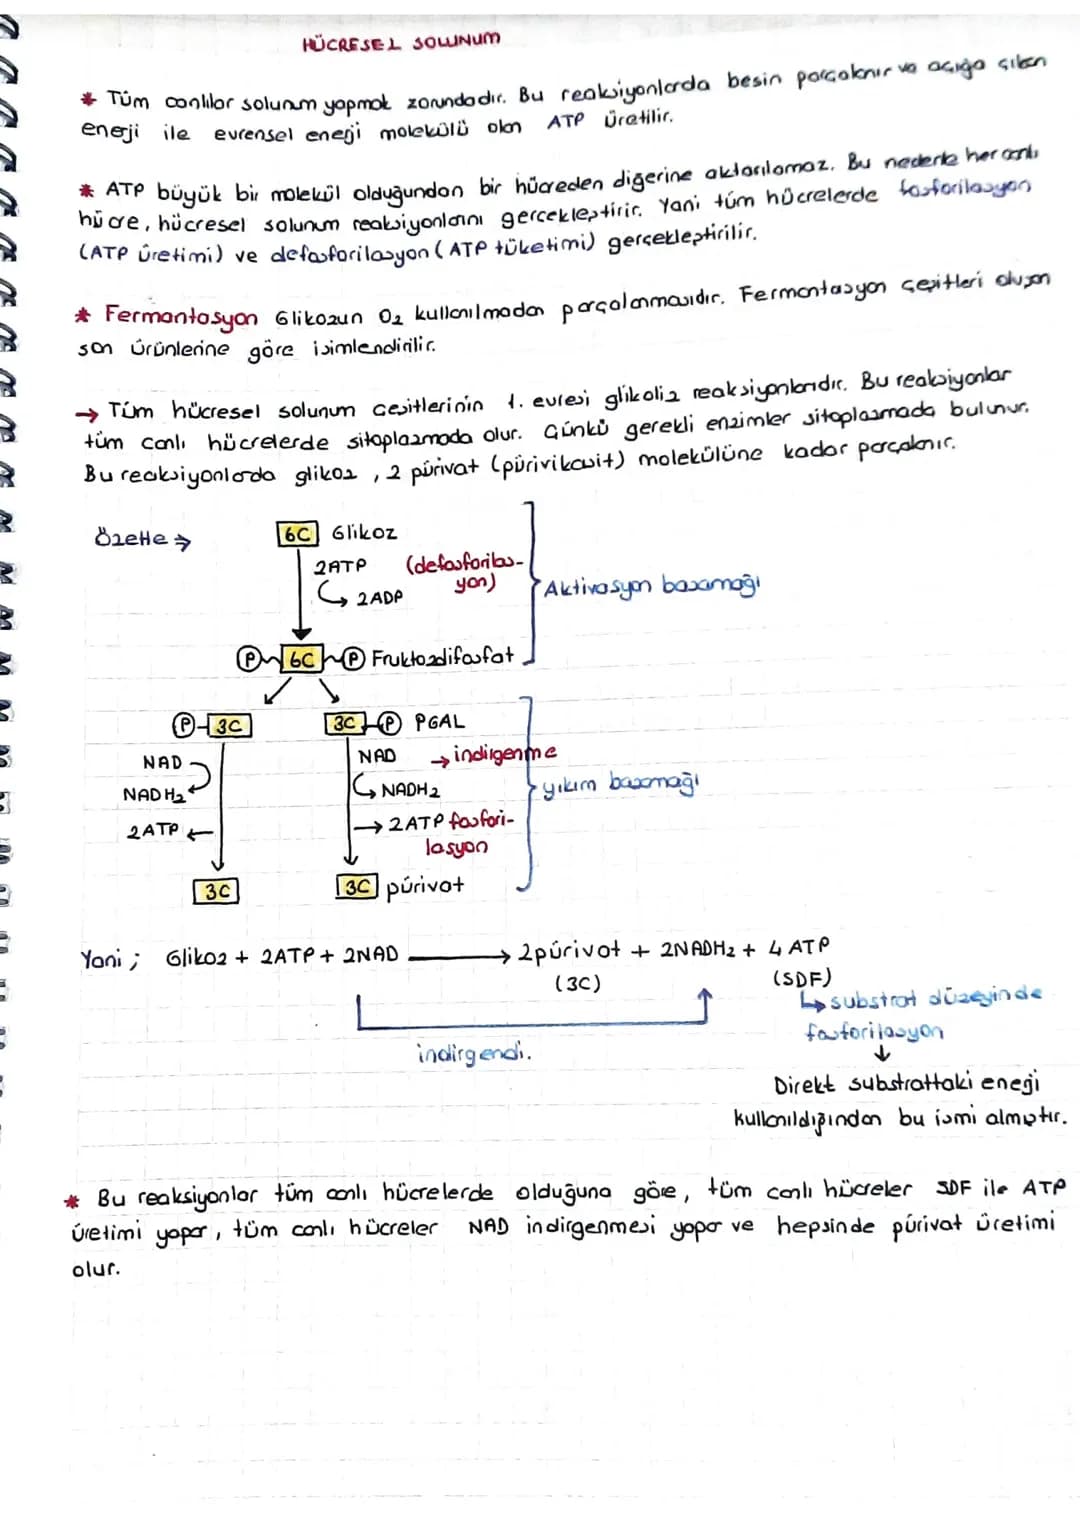 HÜCRESEL SOLUNUM
* Tüm canlılar solunum yapmak zorundadır. Bu reaksiyonlarda besin parçalanır ve açığa çıkan
enerji ile evrensel enerji molekülü olan ATP üretilir.
* ATP büyük bir molekül olduğundan bir hücreden diğerine aktarılamaz. Bu nedenle her canlı
hücre, hücresel solunum reaksiyonlarını gerçekleştirir. Yani tüm hücrelerde fosforilasyon
(ATP üretimi) ve defosforilasyon (ATP tüketimi) gerçekleştirilir.
* Fermantasyon Glikozun O2 kullanılmadan parçalanmasıdır. Fermantasyon çeşitleri oluşan
son ürünlerine göre isimlendirilir.
→ Tüm hücresel solunum çeşitlerinin 1. evresi glikoliz reaksiyonlarıdır. Bu reaksiyonlar
tüm canlı hücrelerde sitoplazmada olur. Çünkü gerekli enzimler sitoplazmada bulunur.
Bu reaksiyonlarda glikoz, 2 pürivat (pürivikasit) molekülüne kadar parçalanır.
Özetle →
6C Glikoz
2ATP (defosforilas-
yon)
2ADP
Aktivasyon basamağı
P 6C P Fruktozdifosfat
P 3C 3C P PGAL
NAD NAD → indirgenme
NADH2 NADH2
yıkım basamağı
2ATP ← → 2ATP fosfori-
lasyon
3C 3C pürivat
Yani ; Glikoz + 2ATP + 2NAD → 2pürivat + 2NADH2 + 4 ATP
(3C) (SDF)
substrat düzeyinde
fosforilasyon
indirgendi.
↓
Direkt substrattaki enerji
kullanıldığından bu ismi almıştır.
* Bu reaksiyonlar tüm canlı hücrelerde olduğuna göre, tüm canlı hücreler SDF ile ATP
üretimi yapar, tüm canlı hücreler NAD indirgenmesi yapar ve hepsinde pürivat üretimi
olur.